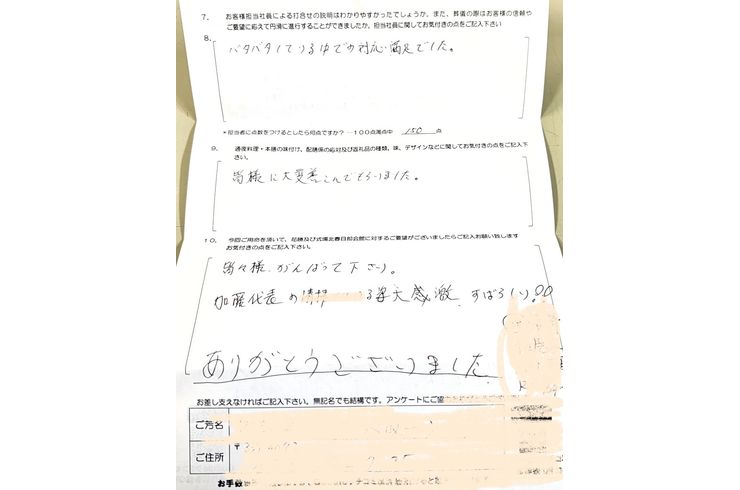 7. お客様担当社員による打合せの説明はわかりやすかったでしょうか。また、葬儀の際はお客様の信頼や
ご要望に応えて円滑に進行することができましたか。担当社員に関してお気付きの点をご記入下さい
8.
バタバタしている中での対応、満足でした。
*担当者に点数をつけるとしたら何点ですか？ー100点満点中 150 点
9. 通夜料理・本膳の味付け、配膳係の応対及び返礼品の種類、味、デザインなどに関してお気付きの点をご記入下
さい。
皆様に大変喜こんでもらいました。
10. 今回ご用命を頂いて、花勝及び式場北春日部会館に対するご要望がございましたらご記入お願い致します
お気付きの点をご記入下さい。
皆々様、がんばって下さい。
加藤代表の 姿大感激 すばらしい。
ありがとうございました
お差し支えなければご記入下さい。無記名でも結構です。アンケートにご
ご芳名
ご住所
〒
お手数